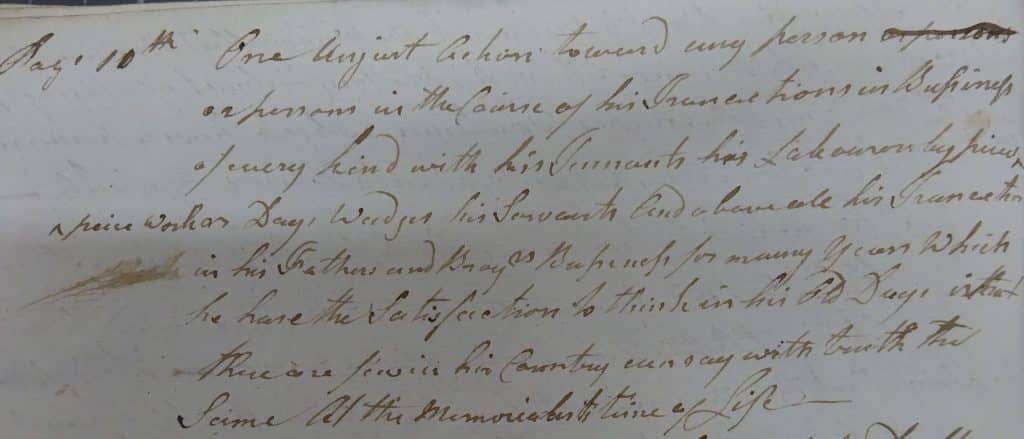 Pag: 10th One Unjust Action toward any person or persons
or persons in the Course of his Transactions in Bussiness
of every kind with his Tennants his Labourors by piece
piece work or Days Wadges his Servants And above all his Transactions
in his Fathers and Brors Bussiness for many Years Which
he have the Satisfaction to think in his Old Days is that
there are few in his Country can say with truth the
Same At the Memorialists time of Life